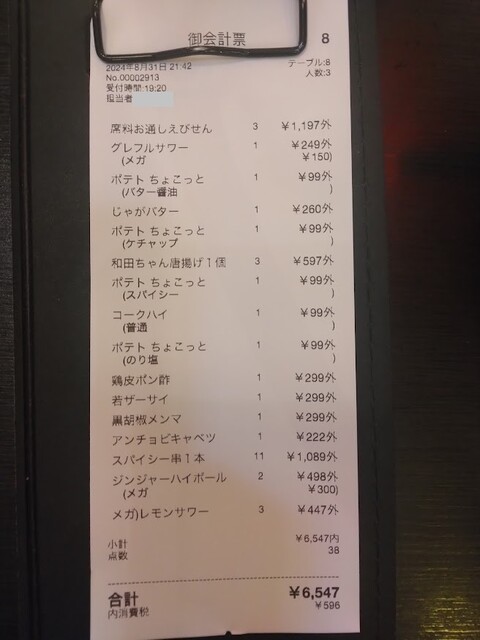 御会計票 8
2024年8月31日 21:42 テーブル:8
No.00002913 人数:3
受付時間:19:20
担当者
席料お通しえびせん 3 ¥1,197外
グレフルサワー 1 ¥249外
(メガ ¥150)
ポテト ちょこっと 1 ¥99外
(バター醤油 )
じゃがバター 1 ¥260外
ポテト ちょこっと 1 ¥99外
(ケチャップ )
和田ちゃん唐揚げ1個 3 ¥597外
ポテト ちょこっと 1 ¥99外
(スパイシー )
コークハイ 1 ¥99外
(普通 )
ポテト ちょこっと 1 ¥99外
(のり塩 )
鶏皮ポン酢 1 ¥299外
若ザーサイ 1 ¥299外
黒胡椒メンマ 1 ¥299外
アンチョビキャベツ 1 ¥222外
スパイシー串1本 11 ¥1,089外
ジンジャーハイボール 2 ¥498外
(メガ ¥300)
メガ)レモンサワー 3 ¥447外
小計 ¥6,547内
点数 38
合計 ¥6,547
内消費税 ¥596